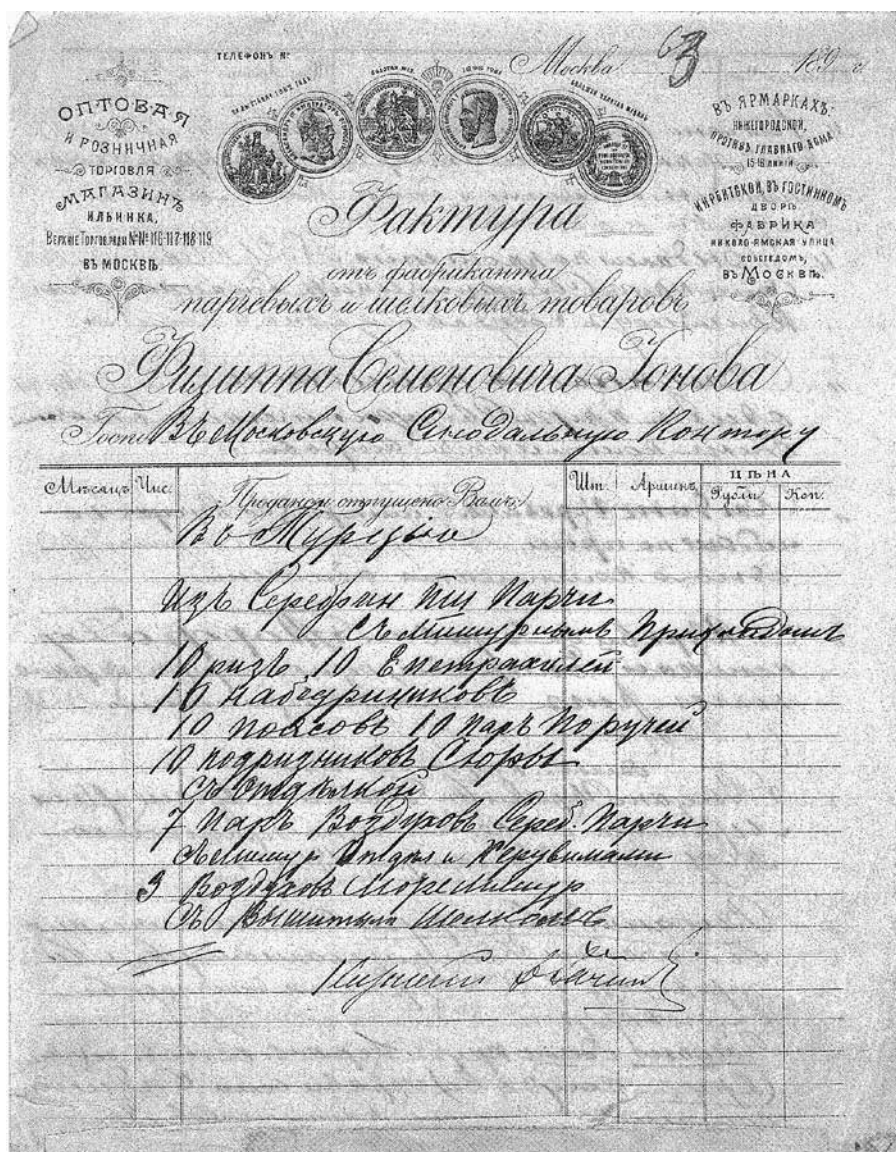 63
ТЕЛЕФОНЪ №
Москва 189 г.
ОПТОВАЯ
И РОЗНИЧНАЯ
ТОРГОВЛЯ
МАГАЗИНЪ
ИЛЬИНКА,
Верхніе Торгов. ряды №№ 116-117-118-119
ВЪ МОСКВѢ.
ВЪ ЯРМАРКАХЪ:
НИЖЕГОРОДСКОЙ,
ПРОТИВЪ ГЛАВНАГО ДОМА
15-16 ЛИНІИ
ИРБИТСКОЙ, ВЪ ГОСТИННОМЪ
ДВОРѢ.
ФАБРИКА
НИКОЛО-ЯМСКАЯ УЛИЦА
СОБСТ. ДОМЪ,
ВЪ МОСКВѢ.
Фактура
отъ фабриканта
парчевыхъ и шелковыхъ товаровъ
Филиппа Семеновича Іонова
Госп. Въ Московскую Сенодальную Контору
Мѣсяцъ Чис. Проданои отпущено Вамъ: Шт. Аршинъ ЦѢНА
Рубли Коп.
Въ Турцію
Изъ Серебрян Парчи
Съ Мишурнымъ Прикладомъ
10 ризъ 10 Епетрахилей
10 набедриниковъ
10 поясовъ 10 паръ Поручей
10 подризниковъ
Съ отдѣлкой
7 паръ Воздуховъ Сереб. Парчи
Съ Мишур Отдѣл и Херувимами
3 Воздуховъ
Съ Вышитымъ Шелкомъ